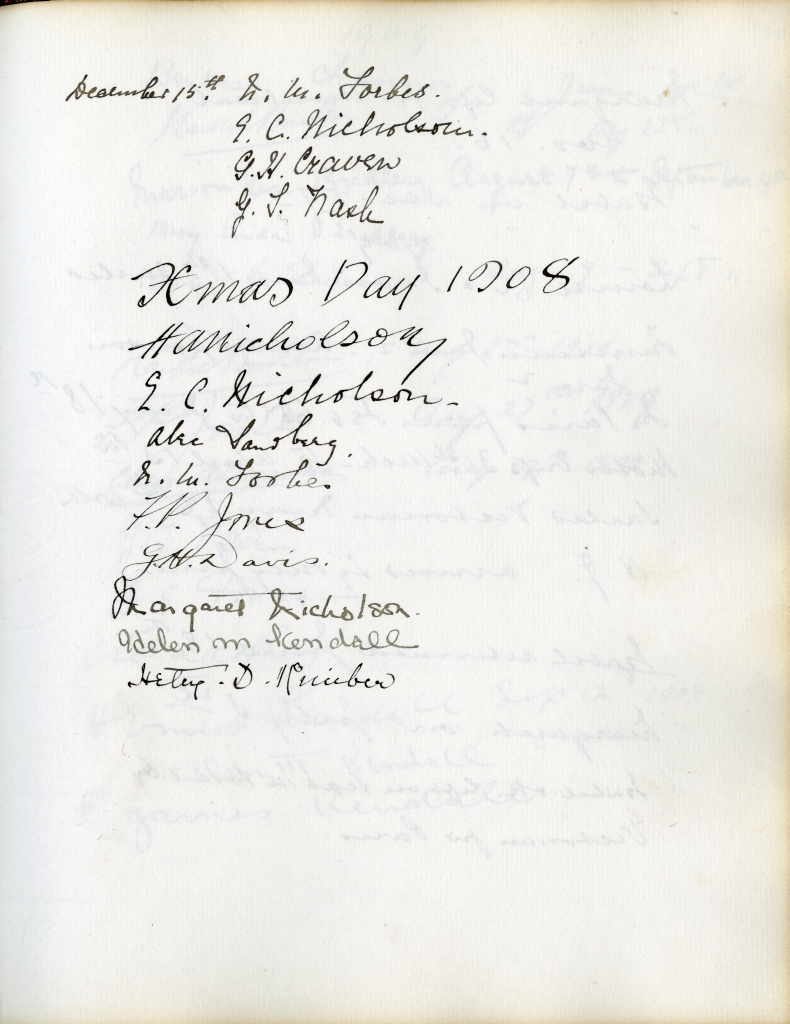 December 15th. N. M. Forbes.
E. C. Nicholson.
G. H. Craven
G. S. Nash
Xmas Day 1908
H A Nicholson
E. C. Nicholson
Alec Sandberg.
N. M. Forbes
F. P. Jones
G. H. Davis.
Margaret Nicholson.
Helen M Kendall
Hetty. D.